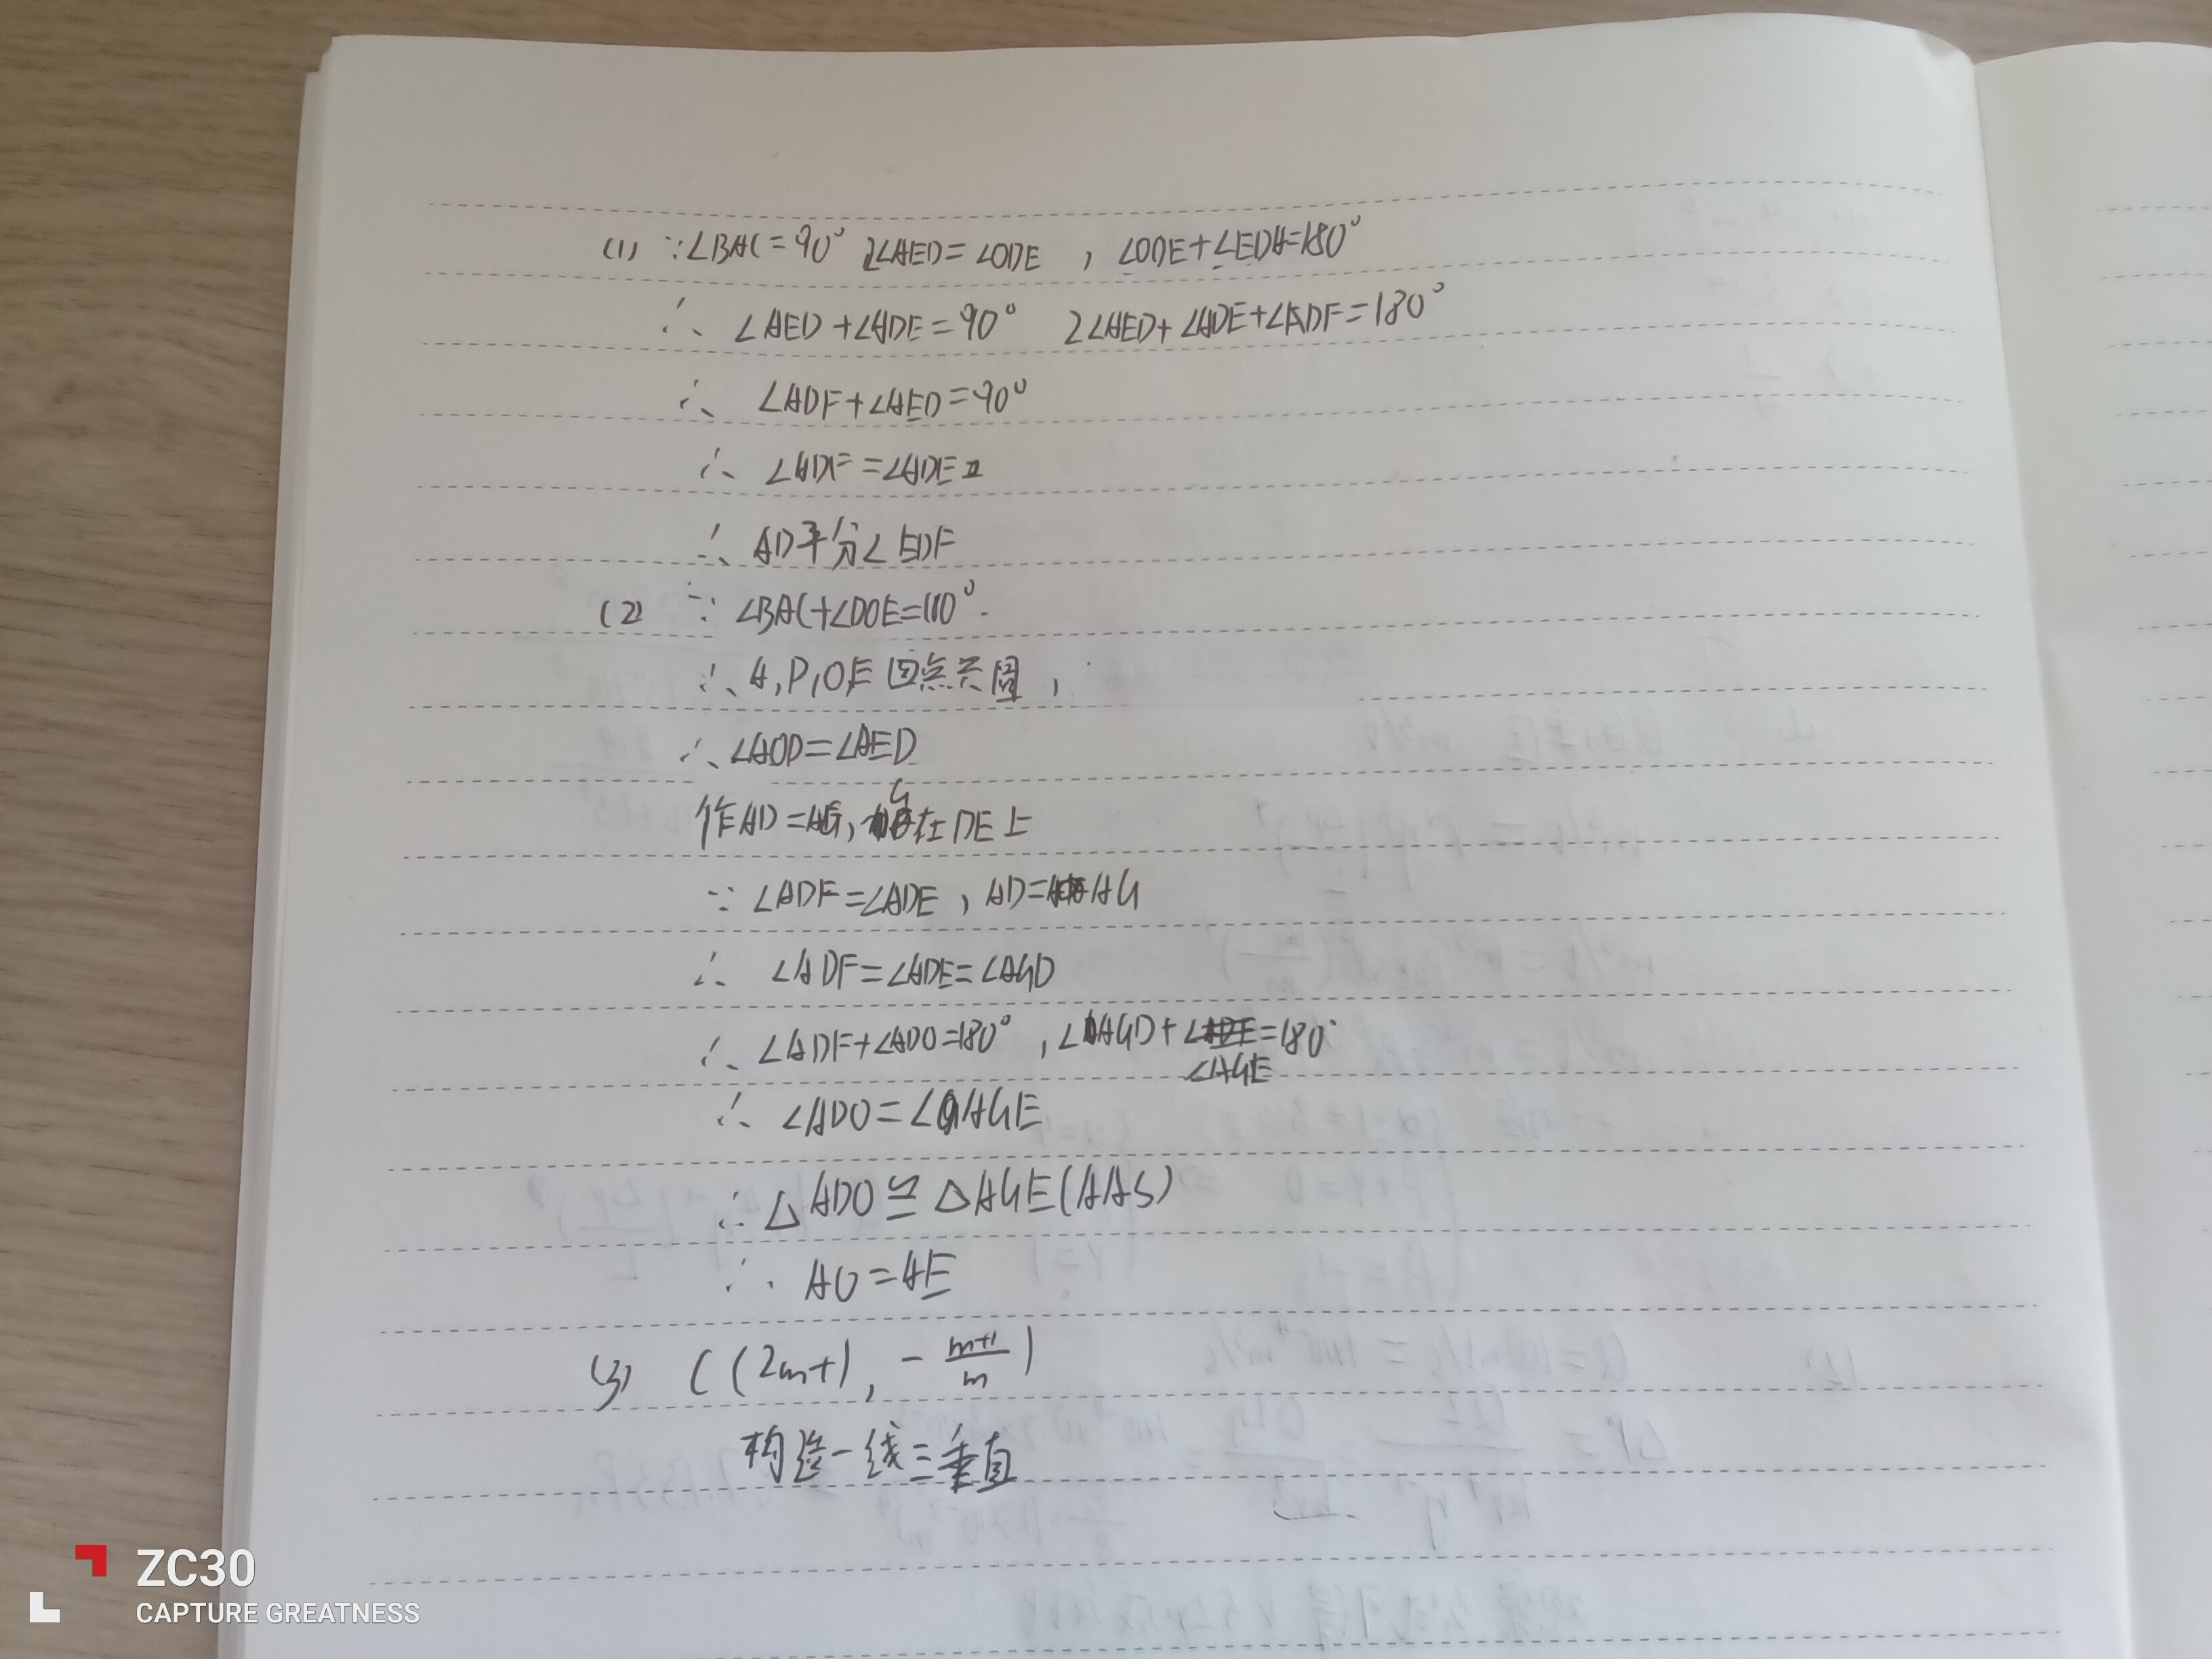 (1) ∵∠BAC=90° 2∠AED=∠ODE , ∠ODE+∠EDA=180°
∴ ∠AED+∠ADE=90° 2∠AED+∠ADE+∠ADF=180°
∴ ∠ADF+∠AED=90°
∴ ∠ADF=∠ADE
∴ AD平分∠EDF
(2) ∵ ∠BAC+∠DOE=180°.
∴ A,D,O,E四点共圆,
∴ ∠AOD=∠AED
作AD=AG, G在DE上
∵ ∠ADF=∠ADE, AD=AG
∴ ∠ADF=∠ADE=∠AGD
∴ ∠ADF+∠ADO=180°, ∠AGD+∠AGE=180°
∴ ∠ADO=∠AGE
∴ △ADO≌△AGE(AAS)
∴ AO=AE
(3) C(2m+1, -\frac{m+1}{m})
构造一线三垂直
ZC30
CAPTURE GREATNESS